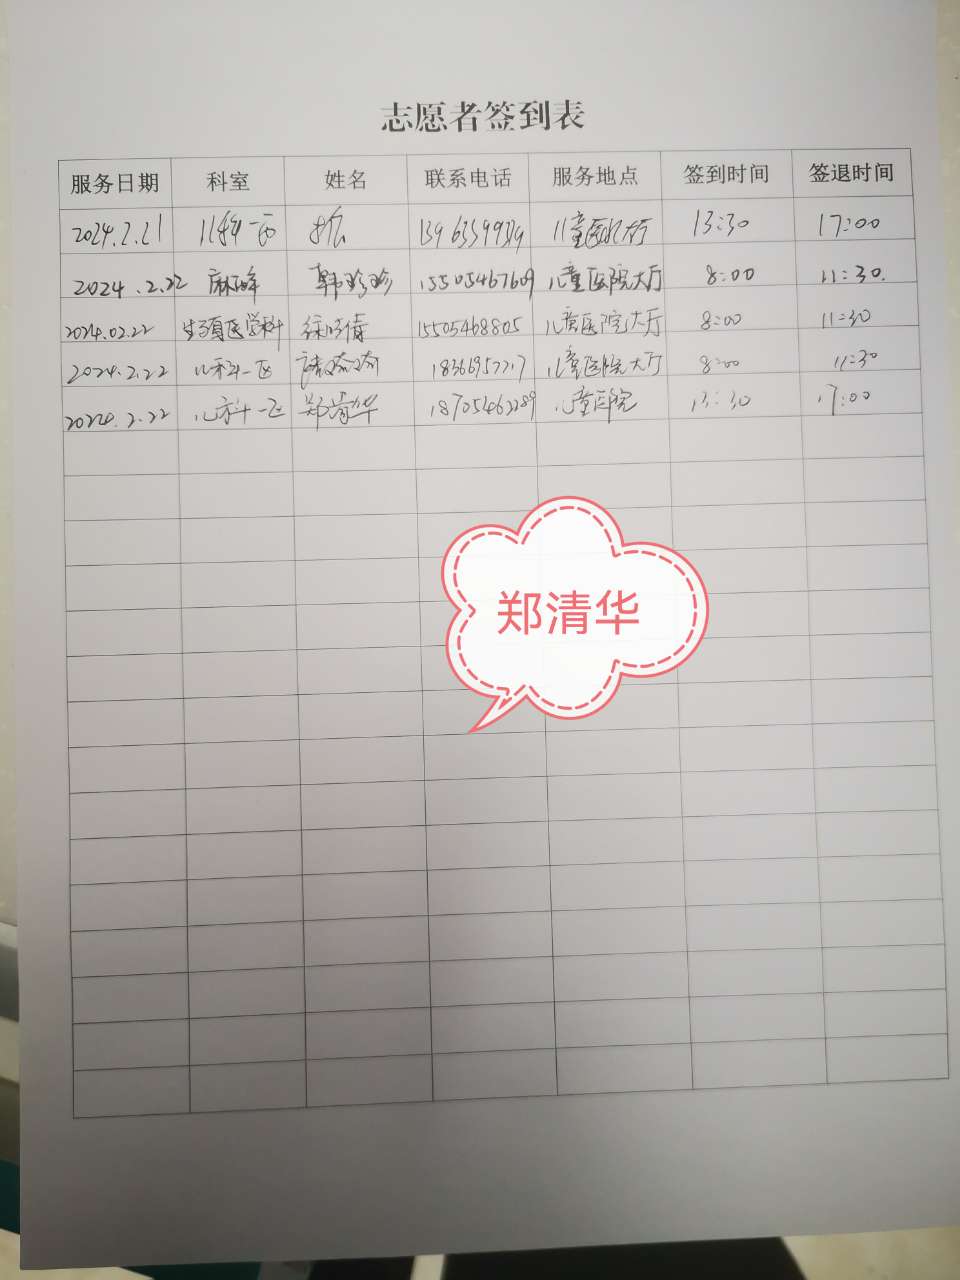 志愿者签到表
服务日期 科室 姓名 联系电话 服务地点 签到时间 签退时间
2024.2.21 儿科一区 儿童医院大厅 13:30 17:00
2024.2.22 韩珍珍 15505467609 儿童医院大厅 8:00 11:30.
2024.02.22 生殖医学科 15505468805 儿童医院大厅 8:00 11:30
2024.2.22 儿科一区 儿童医院大厅 8:00 11:30
2024.2.22 儿科一区 郑清华 18705462289 儿童医院 13:30 17:00
郑清华